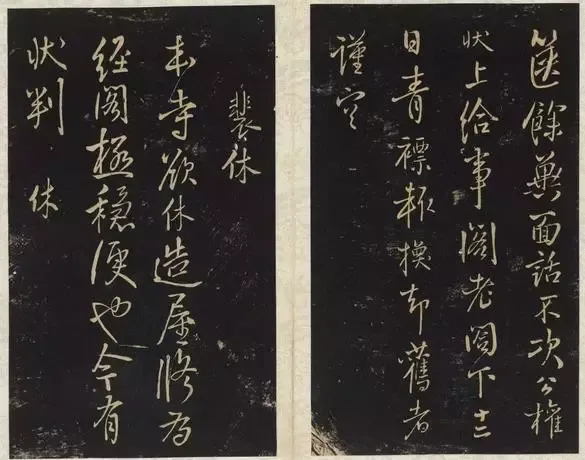 篋餘冀面話不次公權
状上給事閣老閤下十二
日青褾輙換却舊者
謹空
裴休
本寺欲休造屋將为
經閣極穩便也今有
状判 休